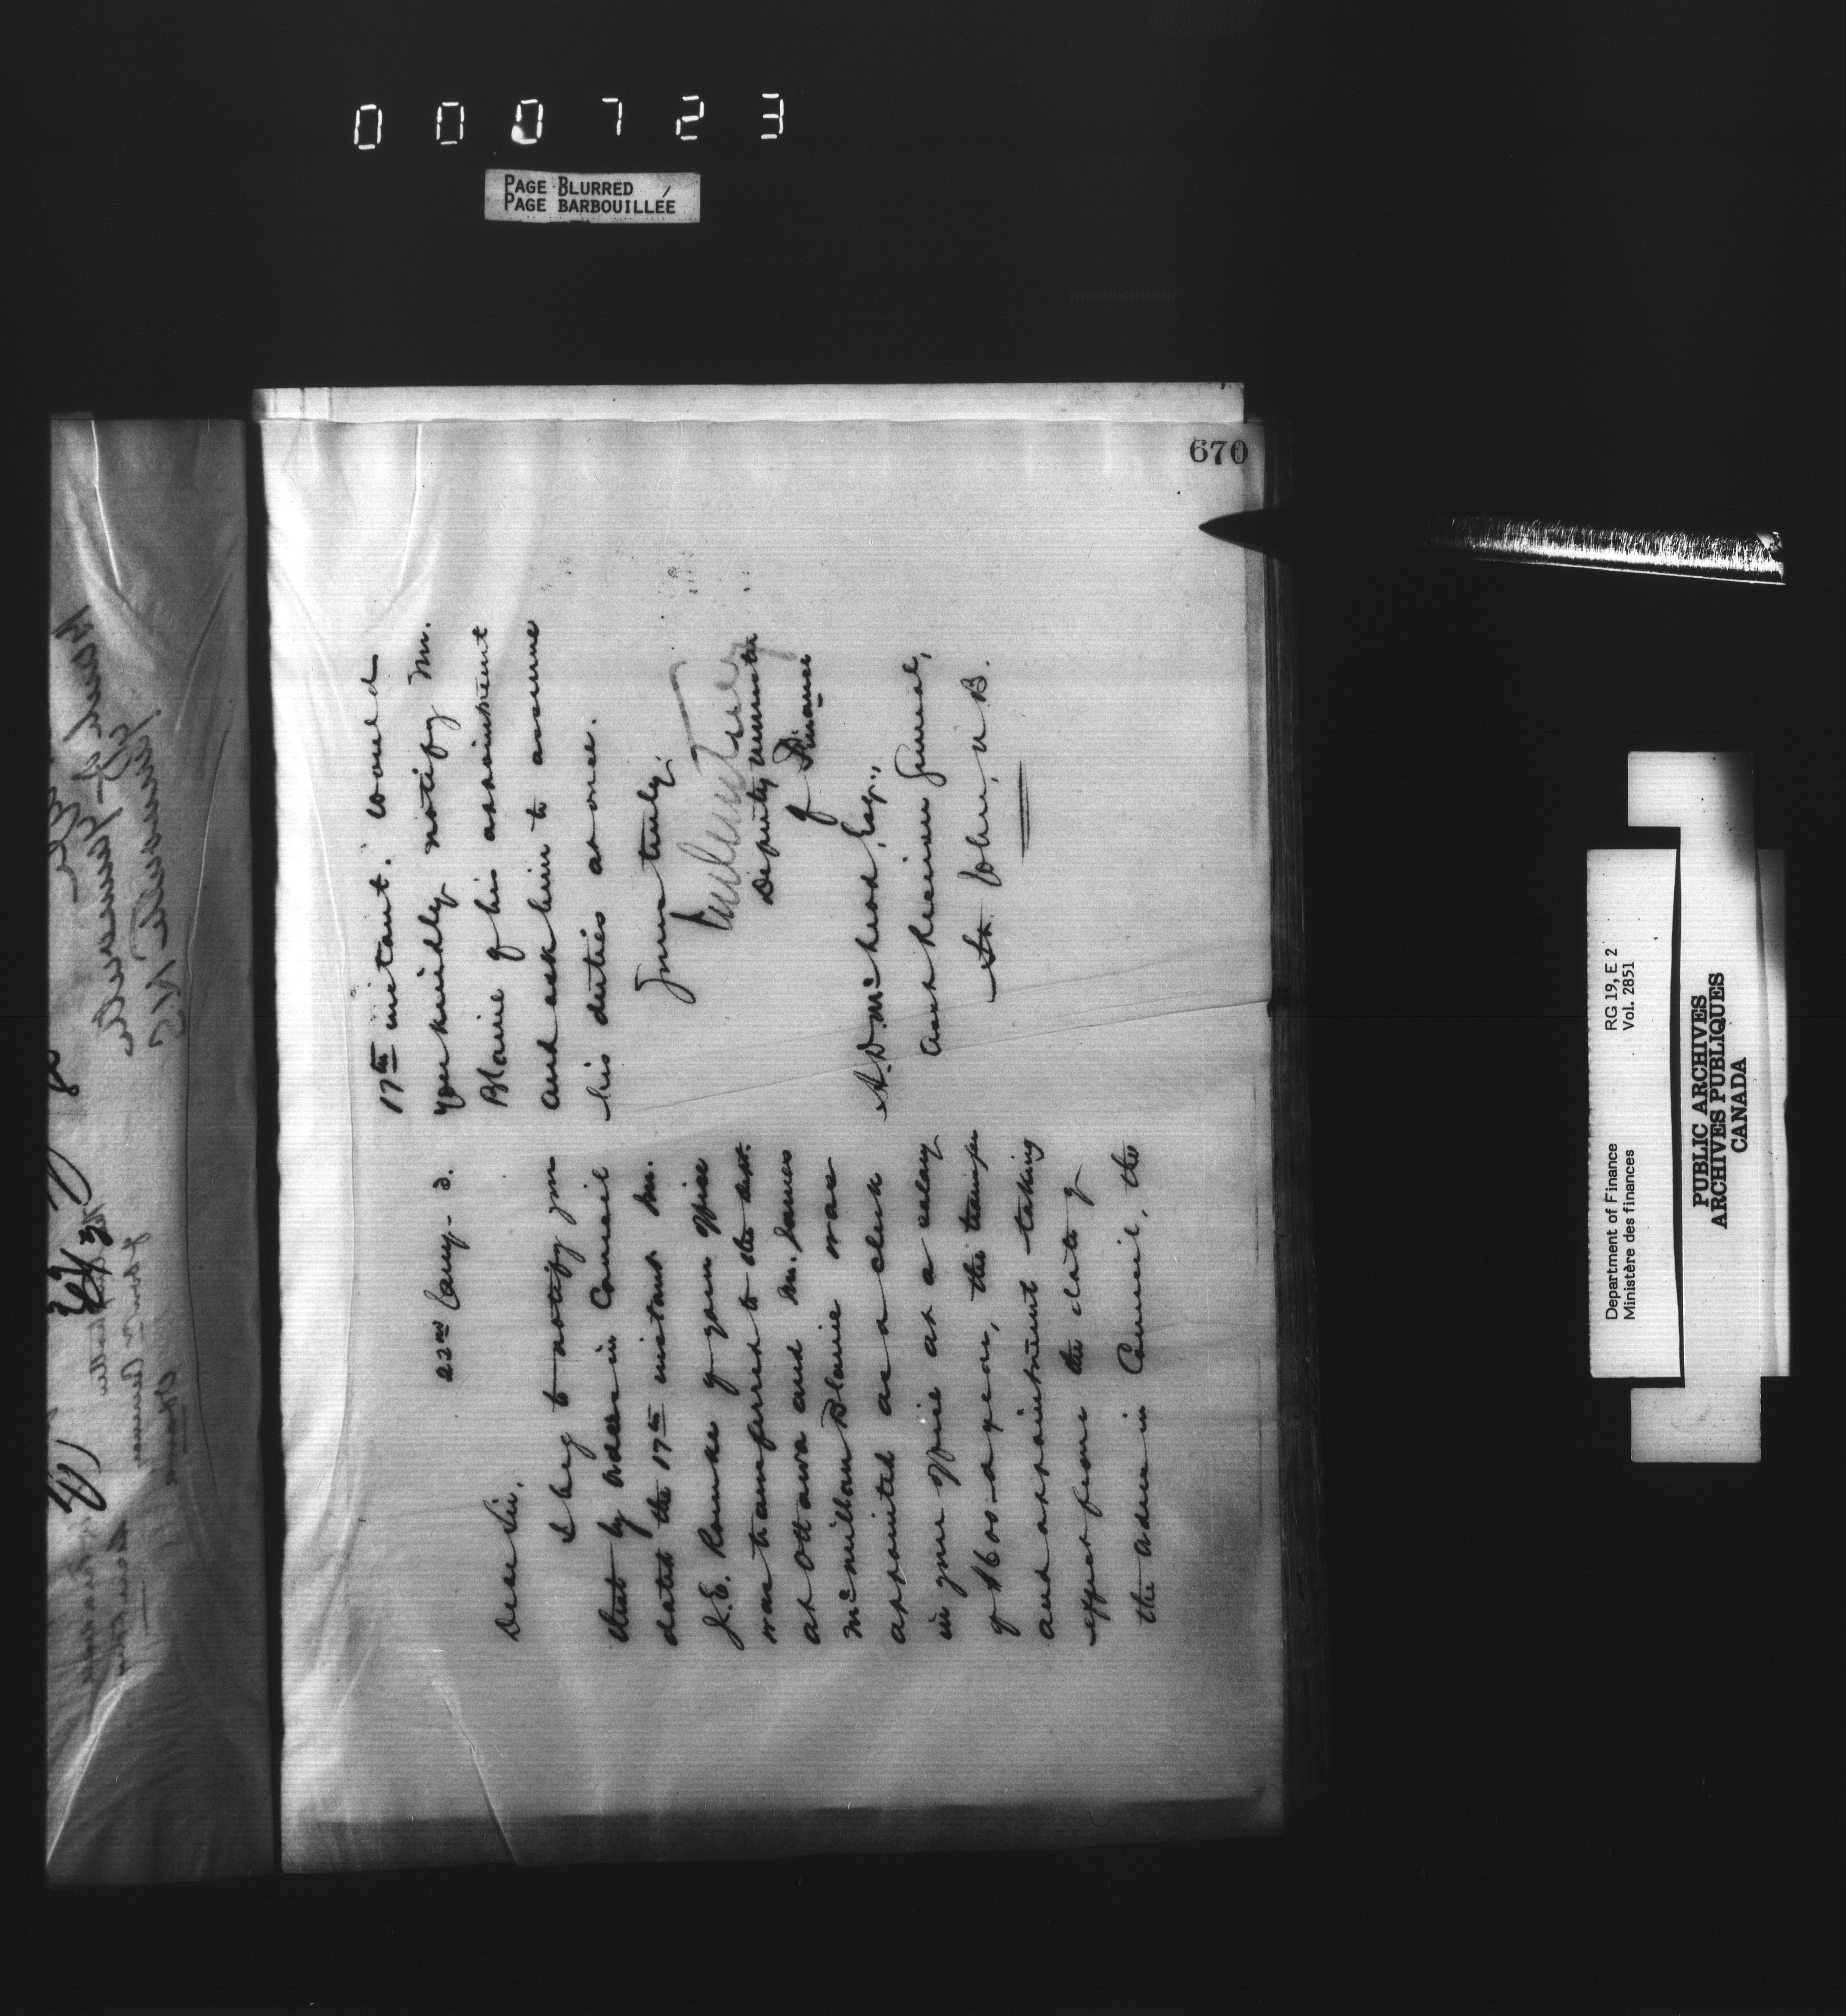 000723
PAGE BLURRED
PAGE BARBOUILLÉE
670
22nd Jany. 3.
Dear Sir,
I beg to notify you
that by Order in Council
dated the 17th instant Mr.
J. E. Rourke of your office
was transferred to the Dept.
at Ottawa and Mr. James
McMillan Blaine was
appointed as a clerk
in your office at a salary
of $600 - a year, the transfer
and appointment taking
effect from the date of
the Order in Council, the
17th instant. Would
you kindly notify Mr.
Blaine of his appointment
and ask him to assume
his duties at once.
Yours truly,
Deputy Minister
of Finance
H. D. McLeod, Esq.,
Asst Receiver General,
St. John, N.B.
Department of Finance RG 19, E 2
Ministère des finances Vol. 2851
PUBLIC ARCHIVES
ARCHIVES PUBLIQUES
CANADA